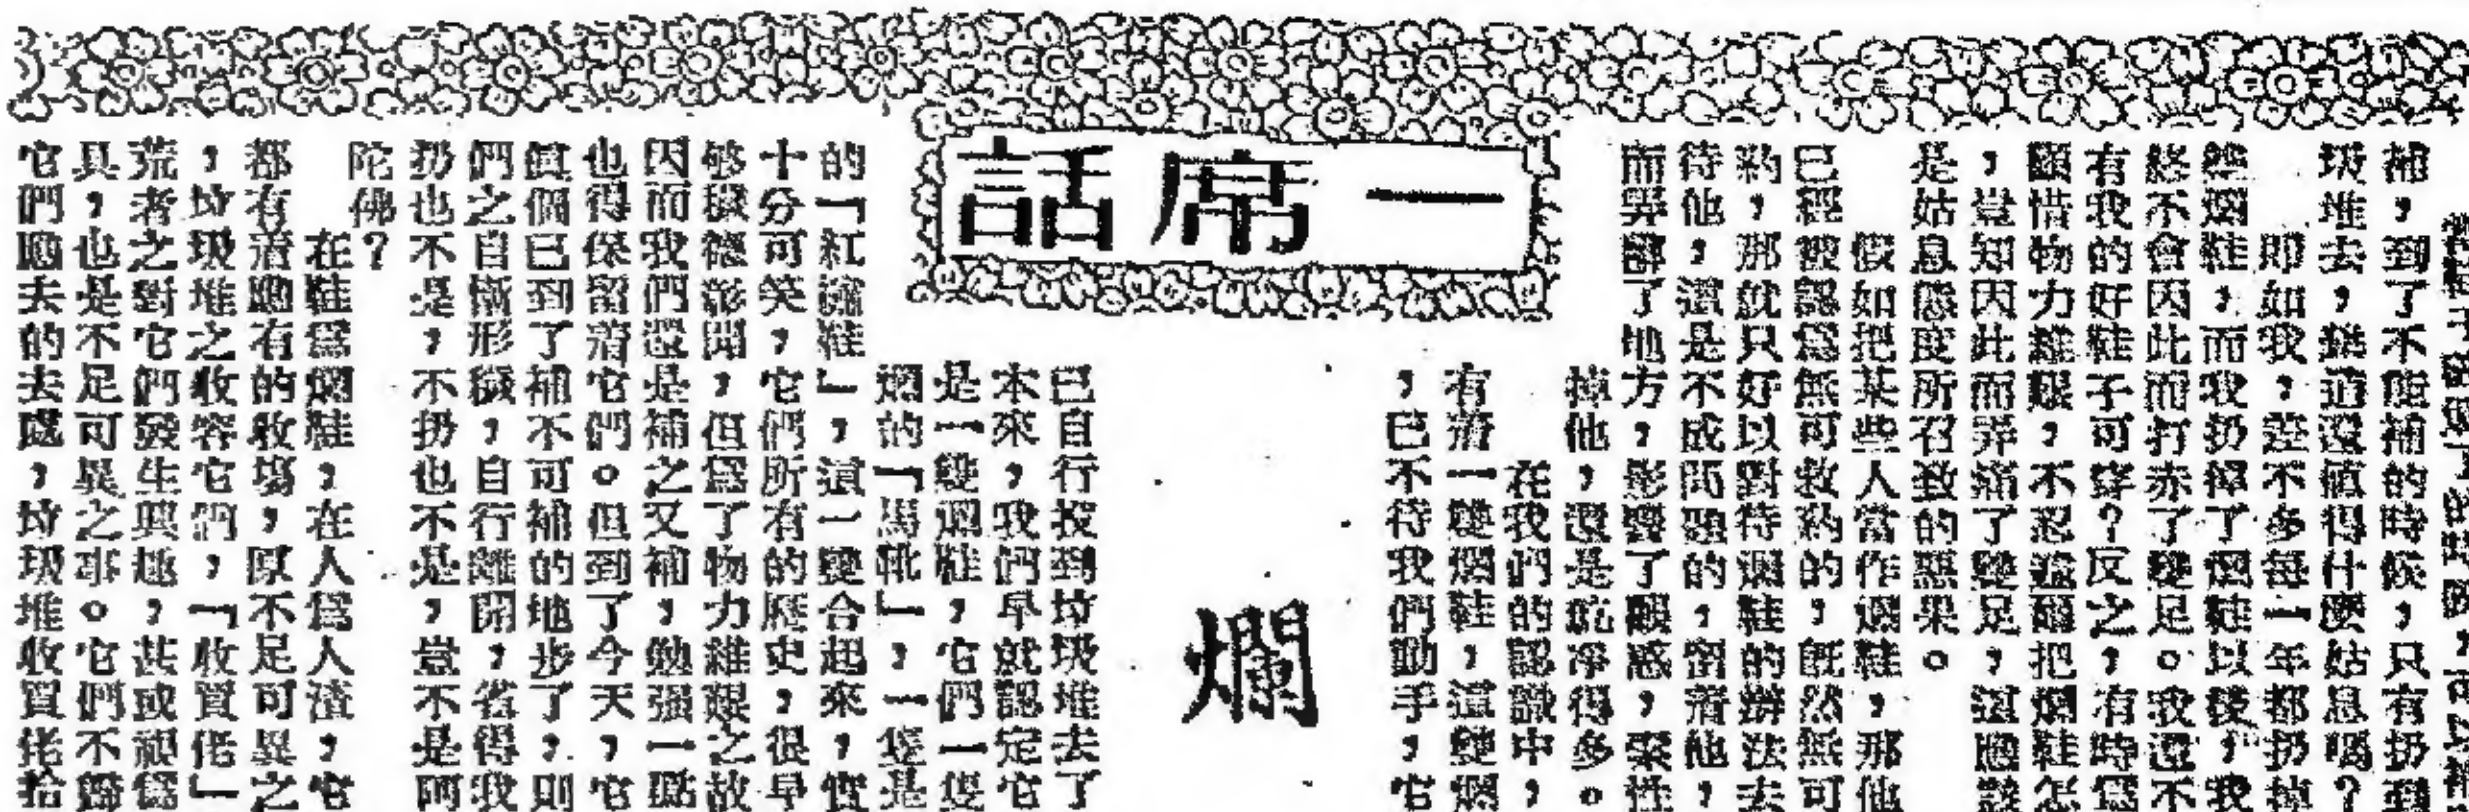 補，到了不能補的時候，只有扔到
圾堆去，難道還值得什麼姑息嗎？
即如我，差不多每一年都扔掉
雙爛鞋，而我扔掉了爛鞋以後，我
終不會因此而打赤了雙足。我還不
有我的好鞋子可穿？反之，有時爲
顧惜物力維艱，不忍遽爾把爛鞋怎
，豈知因此而弄痛了雙足，這應該
是姑息態度所召致的惡果。
假如把某些人當作爛鞋，那他
已經被認爲無可救葯的，既然無可
葯，那就只好以對待爛鞋的辦法去
待他，還是不成問題的，留着他，
而弄髒了地方，影響了觀感，索性
掉他，還是乾淨得多。
在我們的認識中，
有着一雙爛鞋，這雙爛
，已不待我們動手，它
一席話
爛
已自行投到垃圾堆去了
本來，我們早就認定它
是一雙爛鞋，它們一隻
爛的「馬靴」，一隻是
的「紅繡鞋」，這一雙合起來，實
十分可笑，它們所有的歷史，很早
够穢德彰聞，但爲了物力維艱之故
因而我們還是補之又補，勉强一點
也得保留着它們。但到了今天，它
眞個已到了補不可補的地步了，則
們之自慚形穢，自行離開，省得我
扔也不是，不扔也不是，豈不是阿
陀佛？
在鞋爲爛鞋，在人爲人渣，它
都有着應有的收塲，原不足可異之
，垃圾堆之收容它們，「收買佬」
荒者之對它們發生興趣，甚或視爲
具，也是不足可異之事。它們不歸
它們應去的去處，垃圾堆收買佬拾